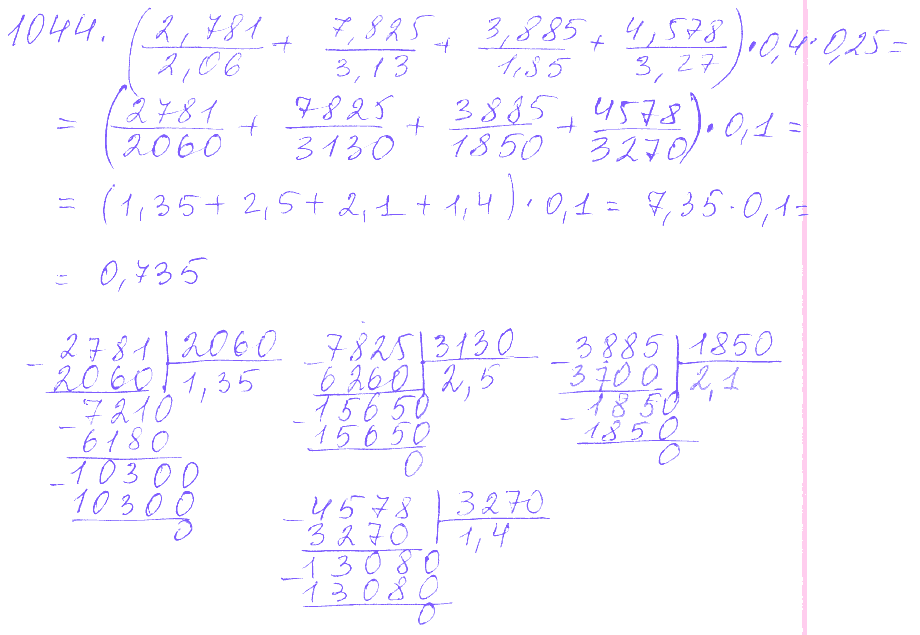 1044. (2,781/2,06 + 7,825/3,13 + 3,885/1,85 + 4,578/3,27) · 0,4 · 0,25 =
= (2781/2060 + 7825/3130 + 3885/1850 + 4578/3270) · 0,1 =
= (1,35 + 2,5 + 2,1 + 1,4) · 0,1 = 7,35 · 0,1 =
= 0,735
- 2781 | 2060
2060 | 1,35
- 7210
6180
- 10300
10300
0
- 7825 | 3130
6260 | 2,5
- 15650
15650
0
- 3885 | 1850
3700 | 2,1
- 1850
1850
0
- 4578 | 3270
3270 | 1,4
- 13080
13080
0